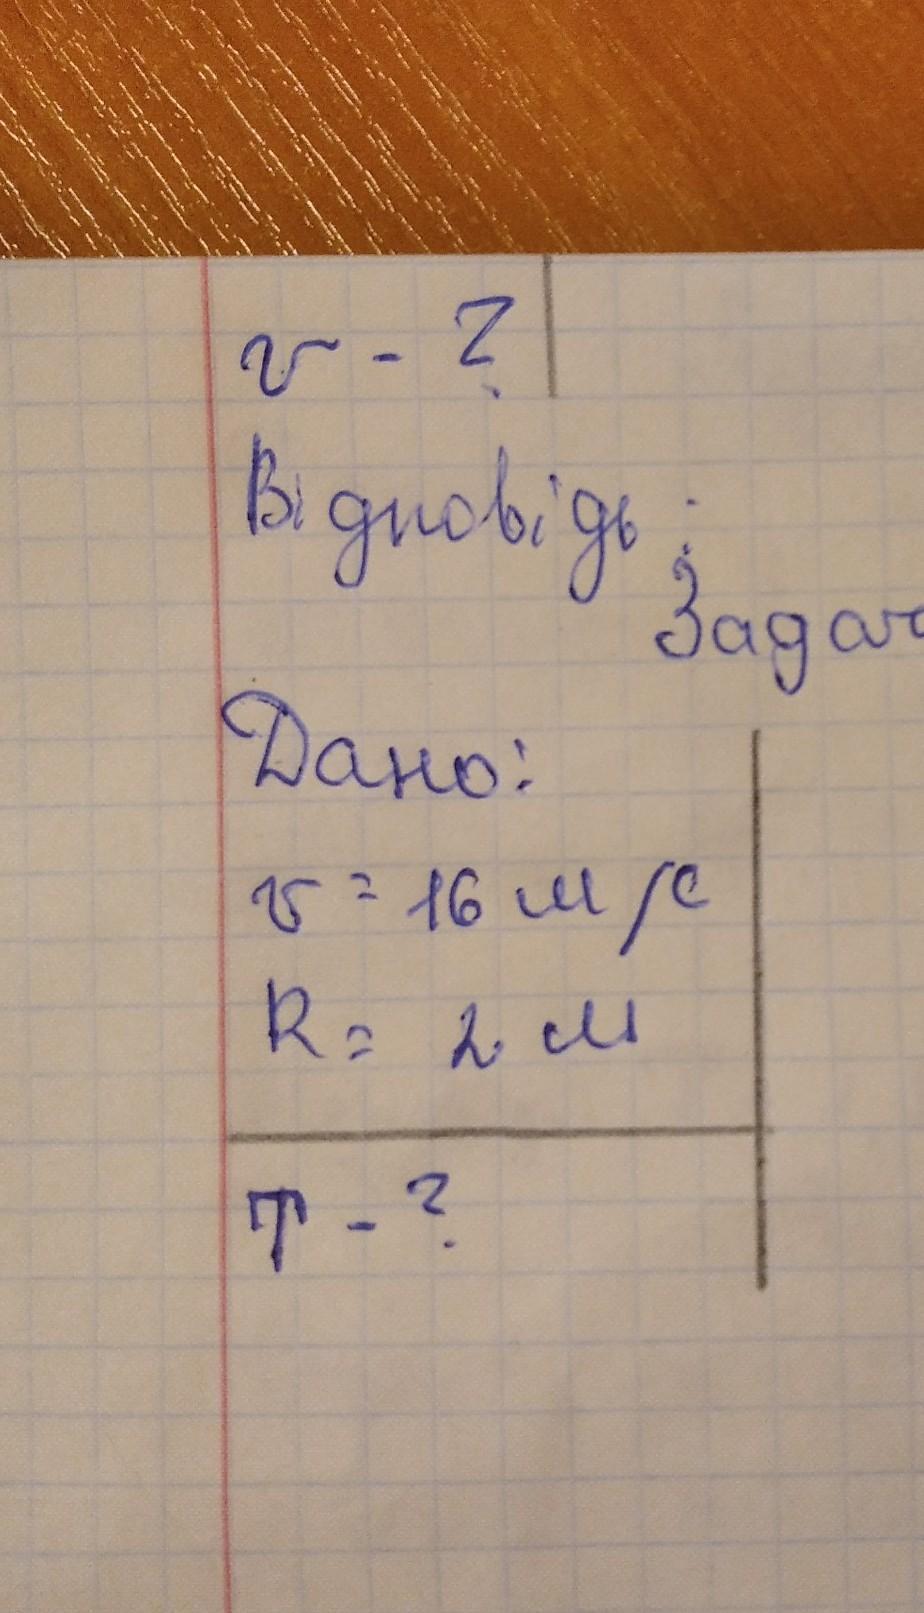 v - ?
Відповідь:
Задач
Дано:
v = 16 м/с
R = 2 м
T - ?